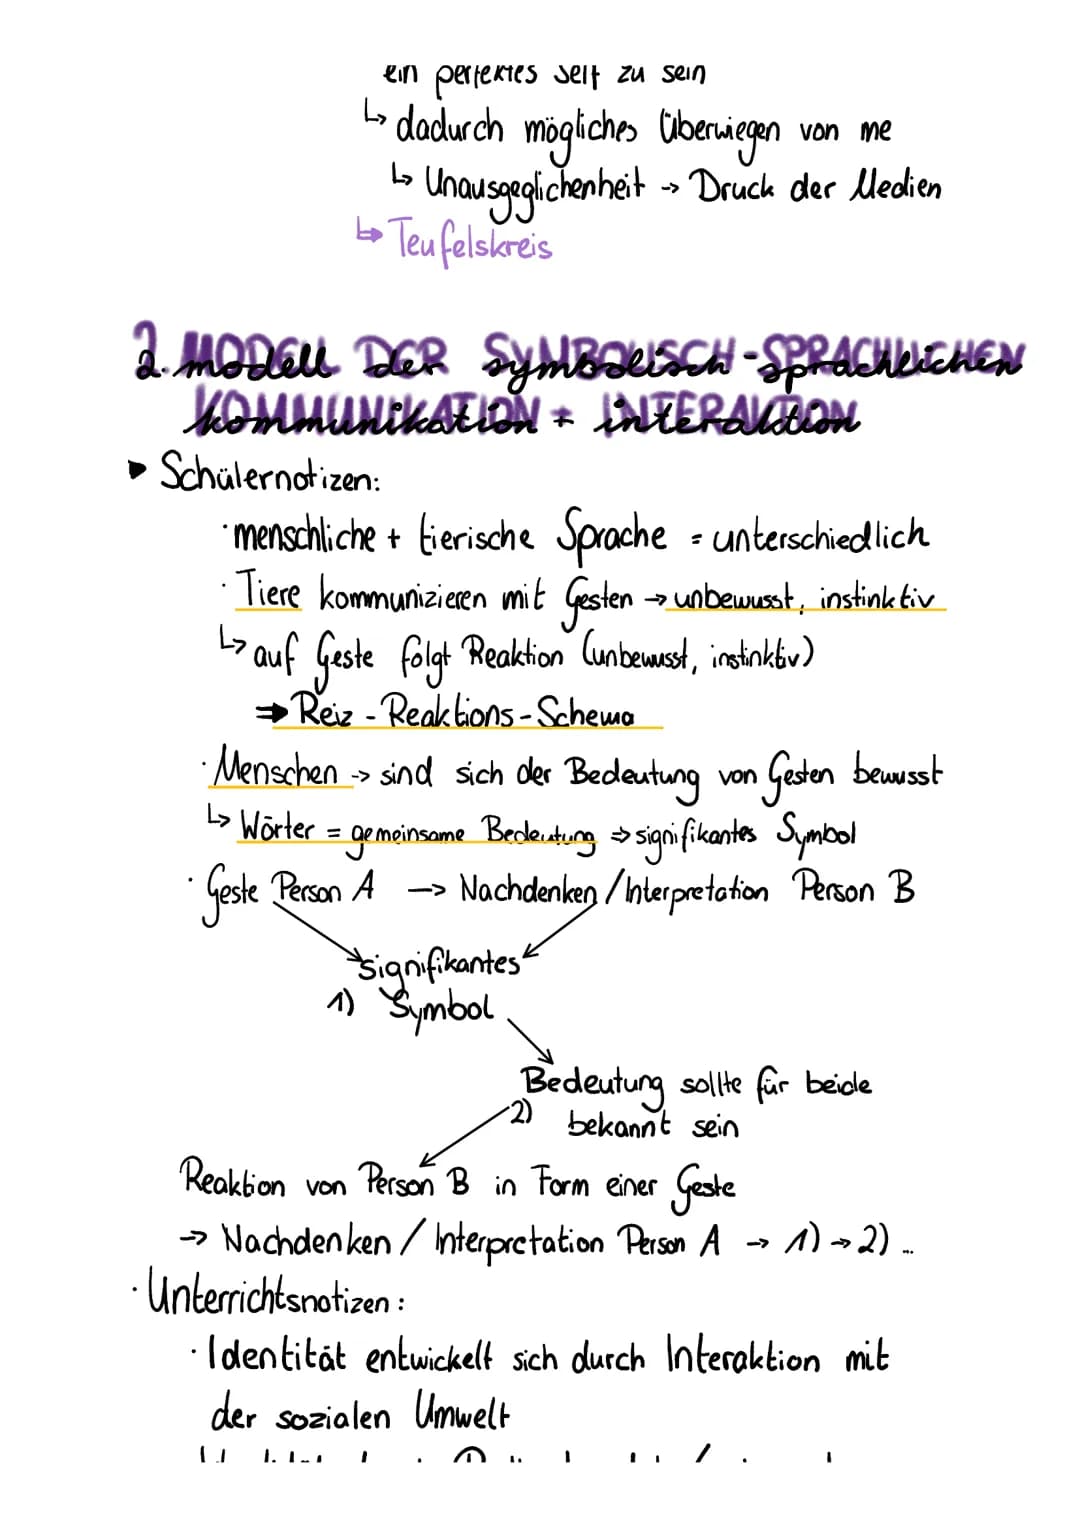 ein perfektes self zu sein
↳ dadurch mögliches Überwiegen von me
↳ Unausgeglichenheit → Druck der Medien
↳ Teufelskreis
2. MODELL DER SYMBOLISCH-SPRACHLICHEN
KOMMUNIKATION + INTERAKTION
▸ Schülernotizen:
· menschliche + tierische Sprache = unterschiedlich
· Tiere kommunizieren mit Gesten → unbewusst, instinktiv
↳ auf Geste folgt Reaktion (unbewusst, instinktiv)
⇒ Reiz-Reaktions-Schema
· Menschen → sind sich der Bedeutung von Gesten bewusst
↳ Wörter = gemeinsame Bedeutung ⇒ signifikantes Symbol
· Geste Person A → Nachdenken/Interpretation Person B
signifikantes
1) Symbol
Bedeutung sollte für beide
2) bekannt sein
Reaktion von Person B in Form einer Geste
→ Nachdenken / Interpretation Person A → 1) → 2) ...
· Unterrichtsnotizen:
· Identität entwickelt sich durch Interaktion mit
der sozialen Umwelt